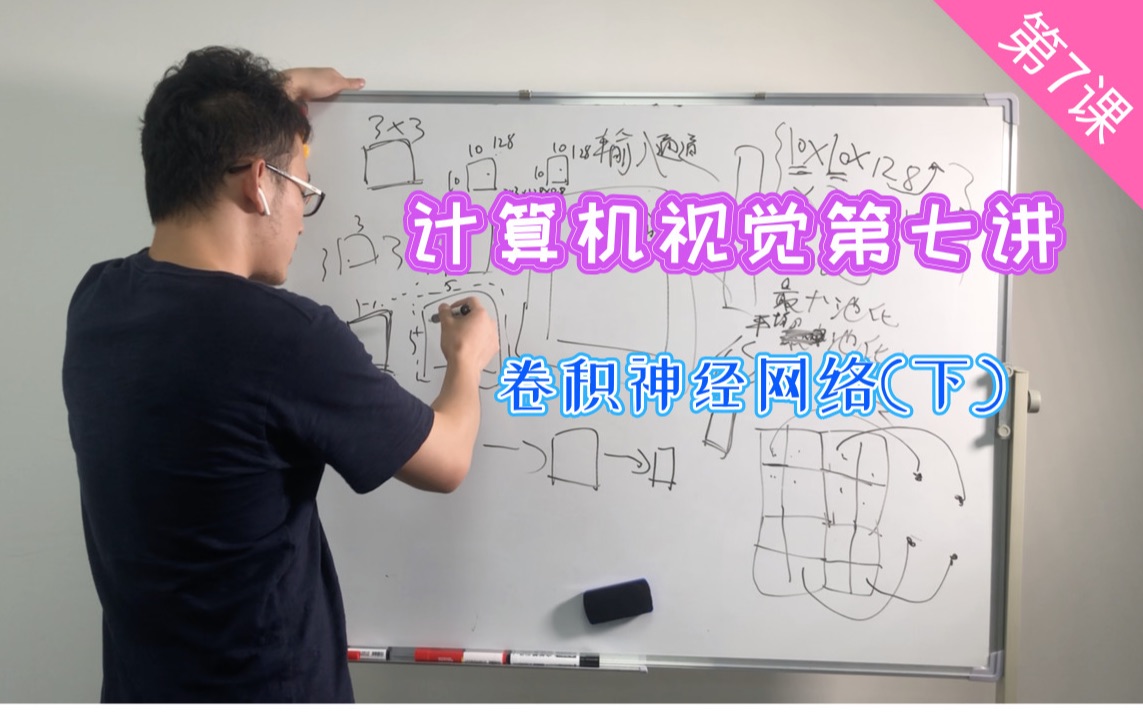 第7课
3×3
10 128 10 128 输入通道
10
{10×10×128}
计算机视觉第七讲
3
3 3
5
5
最大池化
平均池化
卷积神经网络(下)